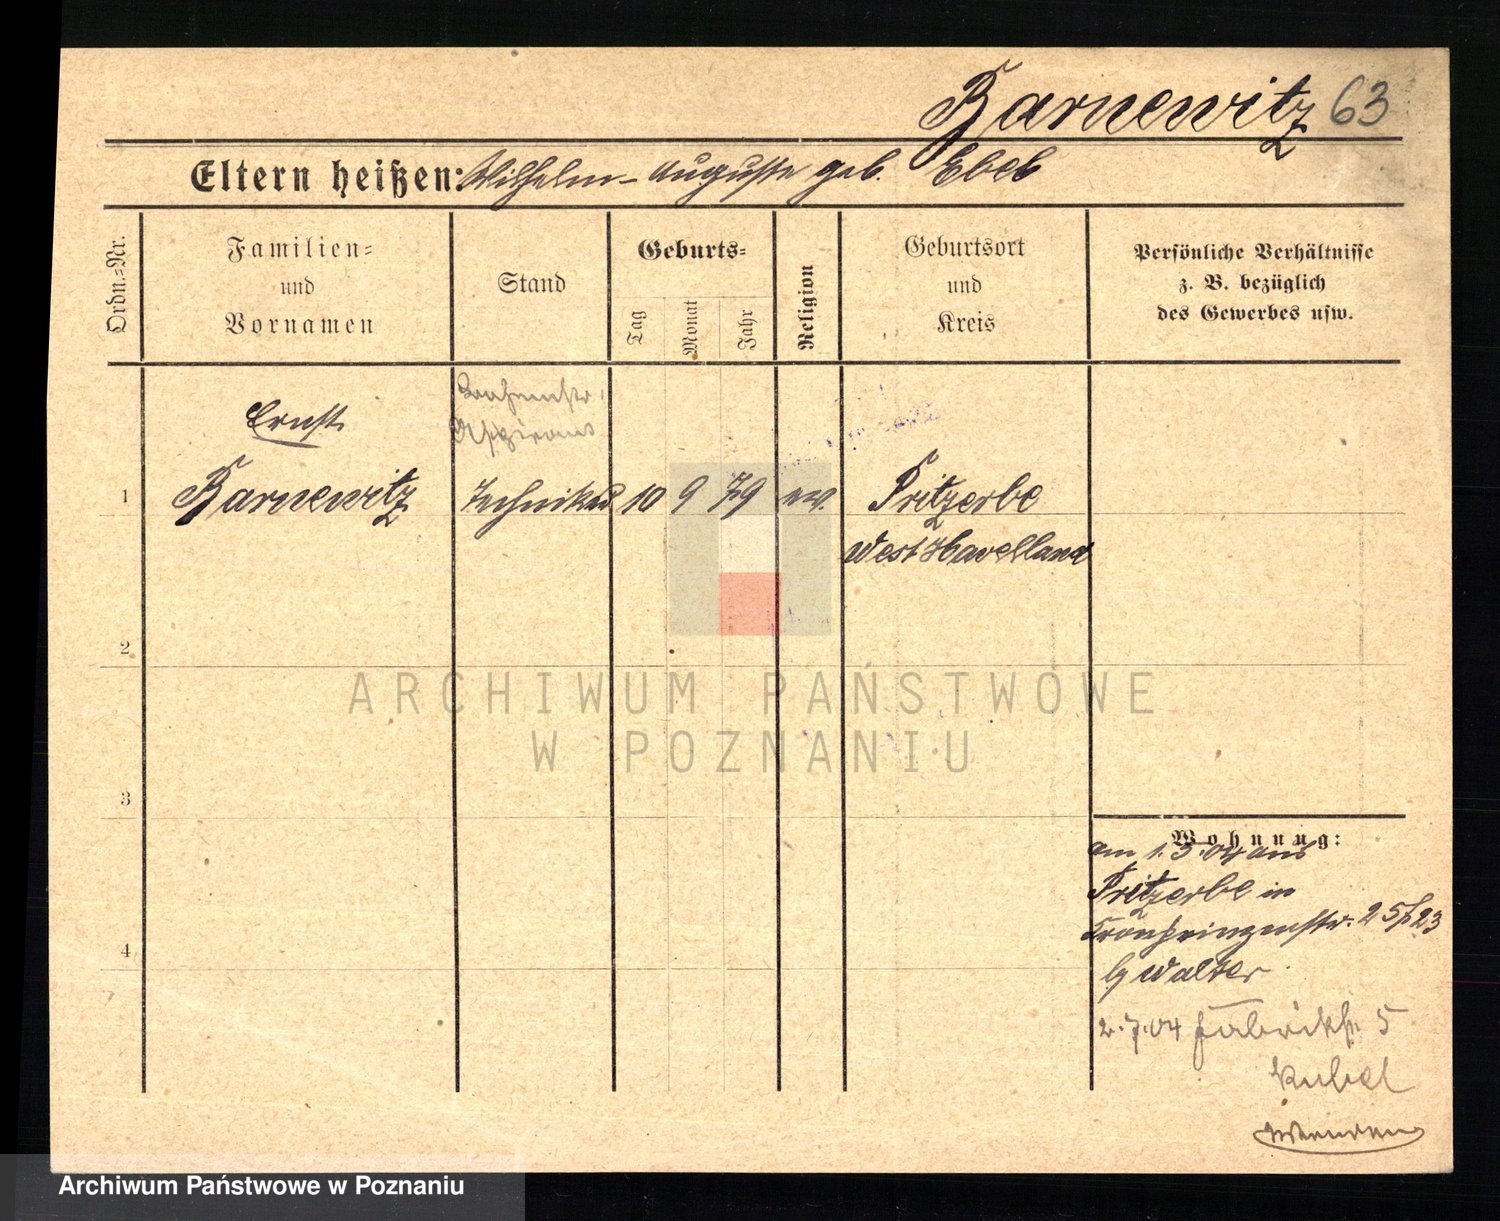 Barnewitz 63
Eltern heißen: Wilhelm - Auguste geb. Ebel
Ordn.=Nr.
Familien=
und
Vornamen
Stand
Geburts=
Tag
Monat
Jahr
Religion
Geburtsort
und
Kreis
Persönliche Verhältnisse
z. B. bezüglich
des Gewerbes usw.
Aspirant
Ernst
1 Barnewitz Techniker 10 9 79 ev. Pritzerbe
West Havelland
2
3
4
Wohnung:
am 1.3.04 aus
Pritzerbe in
Kronprinzenstr. 25
b/ Walter
2.7.04 Fabrikstr 5
ARCHIWUM PAŃSTWOWE
W POZNANIU
Archiwum Państwowe w Poznaniu